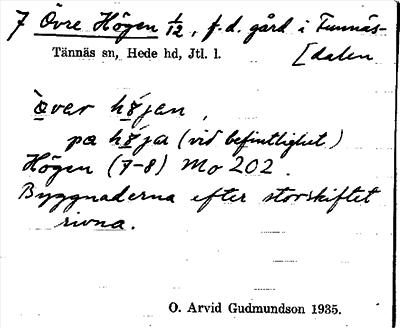 7 Övre Högen 1/12, f.d. gård i Tunnäs-
[dalen
Tännäs sn, Hede hd, Jtl. l.
òver hö́jen,
pa hö́ja (vid befintlighet)
Högen (7-8) Mo 202.
Byggnaderna efter storskiftet
rivna.
O. Arvid Gudmundson 1935.